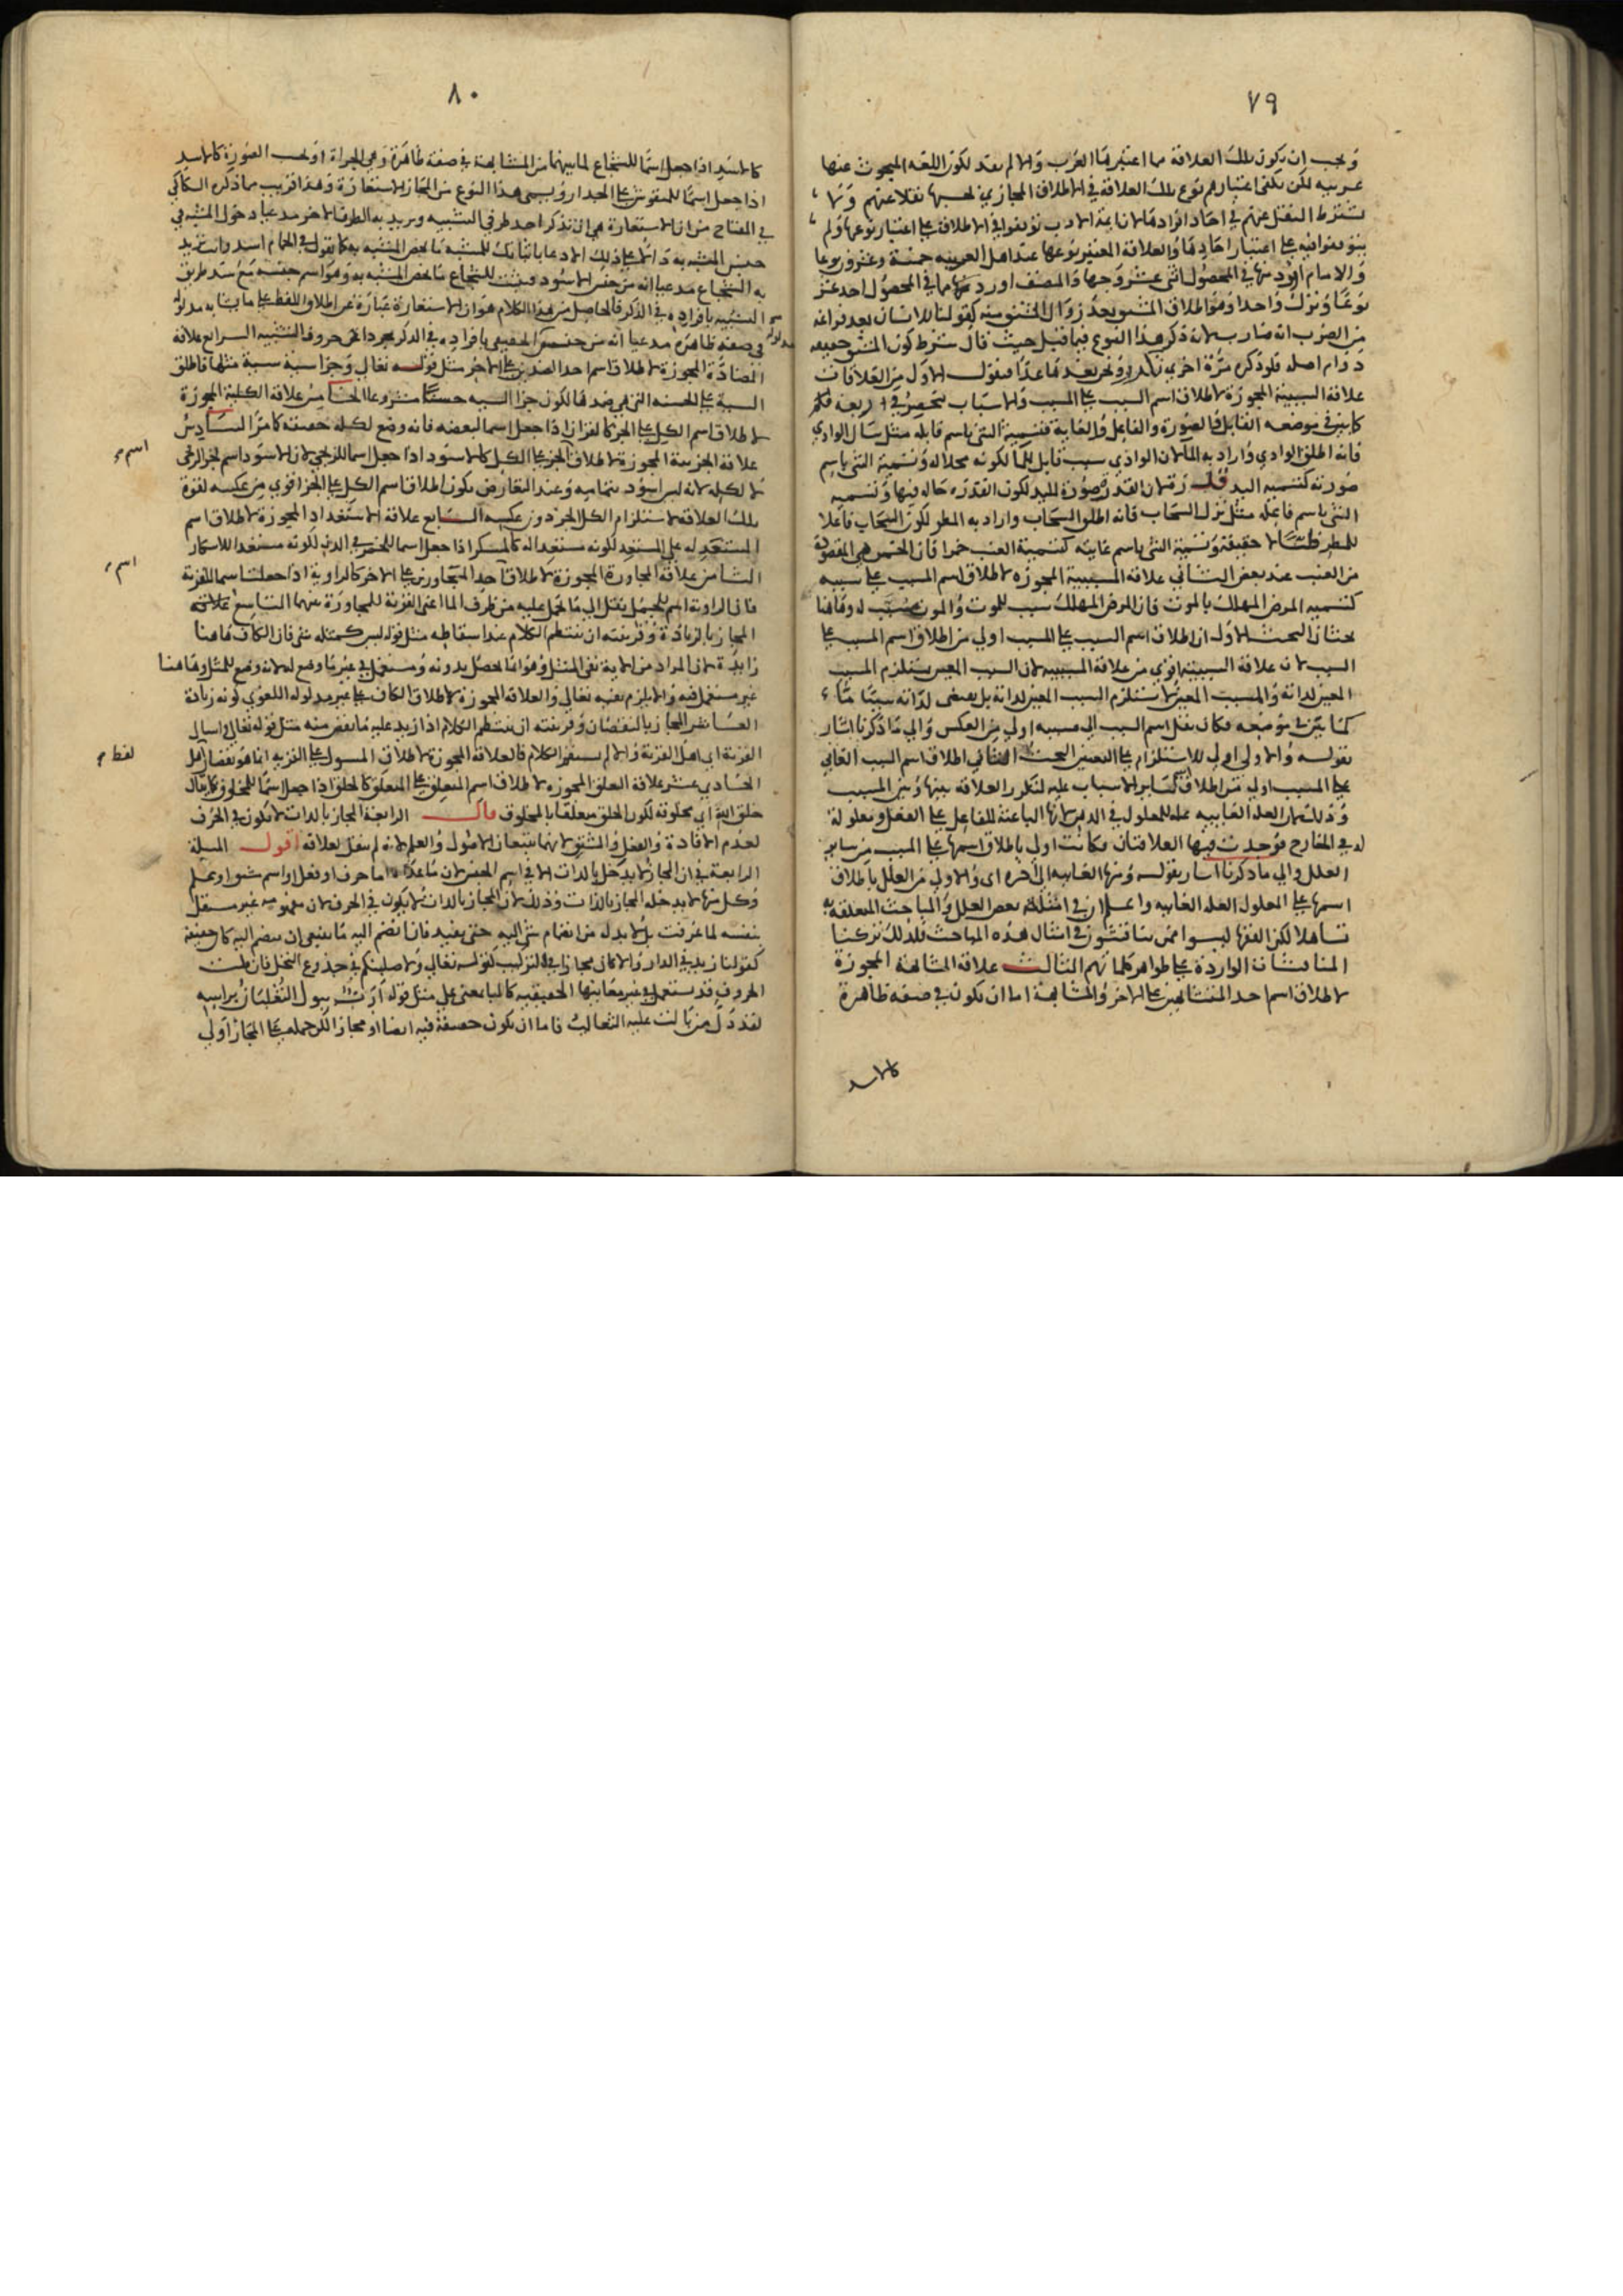 ٧٩
ويجب ان يكون تلك العلاقة مما اعتبرها العرب والا لم بعد لكون اللغة المبحوث عنها
عربيه لكن يكفي اعتبارهم نوع تلك العلاقة في الاطلاق المجازي نقلا عنهم ولا
يشترط النقل عنهم في احاد افرادها لان ايمة الادب لم يتوقفوا في الاطلاق على اعتبار نوعها ولم
يتوقفوا فيه على اعتبار احادها والعلاقة المعتبر نوعها عند اهل العربيه خمسة وعشرون نوعا
والامام اورد منها في المحصول اثنى عشر وجها والمصنف اورد منها ما في المحصول احد عشر
نوعا وترك واحدا وهو اطلاق المشتق بعد زوال المشتق منه كقولنا للانسان بعد فراغه
من الضرب انه ضارب لانه ذكر هذا النوع فيما قبل حيث قال شرط كون المشتق حقيقه
دوام اصله فلو ذكره مرة اخرى تكرر ونحن نعدها عدا فنقول الاول من العلاقات
علاقة السببية المجوزة لاطلاق اسم السبب على المسبب والاسباب تنحصر في اربعة
كما بين في موضعه القابل والصورة والفاعل والغاية فتسمية الشي باسم قابله مثل سال الوادي
فانه اطلق الوادي واراد به الما لان الوادي سبب قابل للما لكونه محلا له وتسمية الشي باسم
صورته كتسميه اليد قدرة لان القدرة صورة لليد لكون القدره حالة فيها وتسميه
الشي باسم فاعله مثل نزل السحاب فانه اطلق السحاب واراد به المطر لكون السحاب فاعلا
للمطر ظنا لا حقيقة وتسمية الشي باسم غايته كتسمية العنب خمرا فان الخمر هي المقصودة
من العنب عند بعض الثاني علاقة المسببية المجوزه لاطلاق اسم المسبب على سببه
كتسميه المرض المهلك بالموت فان المرض المهلك سبب للموت والموت مسبب له وهاهنا
بحثان البحث الاول ان اطلاق اسم السبب على المسبب اولى من اطلاق اسم المسبب على
السبب لان علاقة السببية اقوى من علاقة المسببيه لان السبب المعين يستلزم المسبب
المعين لذاته والمسبب المعين لا يستلزم السبب المعين لذاته بل يقتضي لذاته سببا ما
كما بين في موضعه فكان نقل اسم السبب الى مسببه اولى من العكس والى ما ذكرنا اشار
بقوله والاولى اولى للاستلزام على التعيين البحث الثاني اطلاق اسم السبب الغائي
على المسبب اولى من اطلاق اسم ساير الاسباب عليه لتكرر العلاقة بينها وبين المسبب
وذلك لان العله الغائيه علة للمعلول في الذهن لانها الباعثة للفاعل على الفعل ومعلولة
له في الخارج فوجدت فيها العلاقتان فكانت اولى باطلاق اسمها على المسبب من ساير
العلل والى ما ذكرنا اشار بقوله ومنها الغائيه الى اخره اى والاولى من العلل باطلاق
اسمها على المعلول العله الغائيه واعلم ان في امثلة بعض العلل والمباحث المتعلقة به
تساهلا لكن الفقها ليسوا ممن يناقشون في امثال هذه المباحث فلذلك تركنا
المناقشات الواردة على ظواهر كلماتهم الثالث علاقة المشابهة المجوزة
لاطلاق اسم احد المتشابهين على الاخر والمشابهة اما ان تكون في صفة ظاهرة
كالاسد
٨٠
كالاسد اذا جعل اسما للشجاع لما بينهما من المشابهة في صفة ظاهرة وهي الجراة او بحسب الصورة كالاسد
اذا جعل اسما للمنقوش على الجدار ويسمى هذا النوع من المجاز الاستعارة وهذا قريب مما ذكره السكاكي
في المفتاح من ان الاستعارة هي ان تذكر احد طرفي التشبيه وتريد به الطرف الاخر مدعيا دخول المشبه في
جنس المشبه به دالا على ذلك الادعا باثباتك للمشبه ما يخص المشبه به كما تقول في الحمام اسد وانت تريد
به الشجاع مدعيا انه من جنس الاسود فتثبت للشجاع ما يخص المشبه به وهو اسم جنسه مع سد طريق
التشبيه بافراده في الذكر فالحاصل من هذا الكلام هو ان الاستعارة عبارة عن اطلاق اللفظ على ما يشابه مدلوله
في صفة ظاهره مدعيا انه من جنس الحقيقي بافراده في الذكر مجردا عن حروف التشبيه الرابع علاقة
المضادة المجوزة لاطلاق اسم احد الضدين على الاخر مثل قوله تعالى وجزا سية سية مثلها فاطلق
السية على الحسنه التي هي ضدها لكون جزا السيه حسنا مشروعا الخامس علاقة الكلية المجوزة
لاطلاق اسم الكل على الجز كالقران اذا جعل اسما لبعضه فانه وضع لكله حقيقة كما مر السادس
علاقة الجزئية المجوزة لاطلاق الجز على الكل كالاسود اذا جعل اسما للزنجي لان الاسود اسم لجز الزنجي
لا لكله لانه ليس اسود بتمامه وعند التعارض يكون اطلاق اسم الكل على الجز اقوى من عكسه لقوة
تلك العلاقة لاستلزام الكل الجز دون عكسه السابع علاقة الاستعداد المجوزة لاطلاق اسم
المستعد له على المستعد لكونه مستعدا له كالمسكر اذا جعل اسما للخمر في الدن لكونه مستعدا للاسكار
الثامن علاقة المجاورة المجوزة لاطلاق احد المتجاورين على الاخر كالراوية اذا جعلت اسما للقربة
فان الراوية اسم للجمل نقل الى ما يحمل عليه من ظرف الما اعنى القربة للمجاورة بينهما التاسع علاقة
المجاز بالزيادة وقرينته ان ينتظم الكلام عند اسقاطه مثل قوله ليس كمثله شي فان الكاف هاهنا
زايدة لان المراد من الاية نفي المثل وهو انما يحصل بدونه ومستعمل في غير ما وضع له لانه وضع للمثل وهاهنا
غير مستعمل فيه والا يلزم نفيه تعالى والعلاقة المجوزة لاطلاق الكاف على غير مدلوله اللغوي كونه زيادة
العاشر المجاز بالنقصان وقرينته ان ينتظم الكلام اذا زيد عليه ما نقص منه مثل قوله تعالى واسال
القرية اي اهل القرية والا لم يستقم الكلام فالعلاقة المجوزة لاطلاق المسول على القريه انما هو نقصان اهل
الحادي عشر علاقة التعلق المجوزه لاطلاق اسم المتعلق على المتعلق كالخلق اذا جعل اسما للمخلوق كما يقال
خلق الله اي مخلوقه لكون الخلق متعلقا بالمخلوق قال الرابعة المجاز بالذات لا يكون في الحرف
لعدم الافادة والفعل والمشتق لانهما يتبعان الاصول والعلم لانه لم ينقل لعلاقة اقول المسلة
الرابعة في ان المجاز لا يدخل بالذات الا في اسم الجنس لان ما عداه اما حرف او فعل او اسم مشتق او علم
وكل منها لا يدخله المجاز بالذات وذلك لان المجاز بالذات لا يكون في الحرف لان مفهومه غير مستقل
بنفسه لما عرفت بل لا بد له من انضمام شي اليه حتى يفيد فان انضم اليه ما ينبغي ان ينضم اليه كان حقيقة
كقولنا زيد في الدار والا كان مجازا في التركيب كقوله تعالى ولاصلبنكم في جذوع النخل فان قلت
الحروف قد تستعمل في غير معانيها الحقيقيه كالبا بمعنى على مثل قوله ارب يبول الثعلبان براسه
لقد ذل من بالت عليه الثعالب فاما ان يكون حقيقة فيه ايضا او مجازا لكن حمله على المجاز اولى
مدلوله
اسم
اسم
لفظ